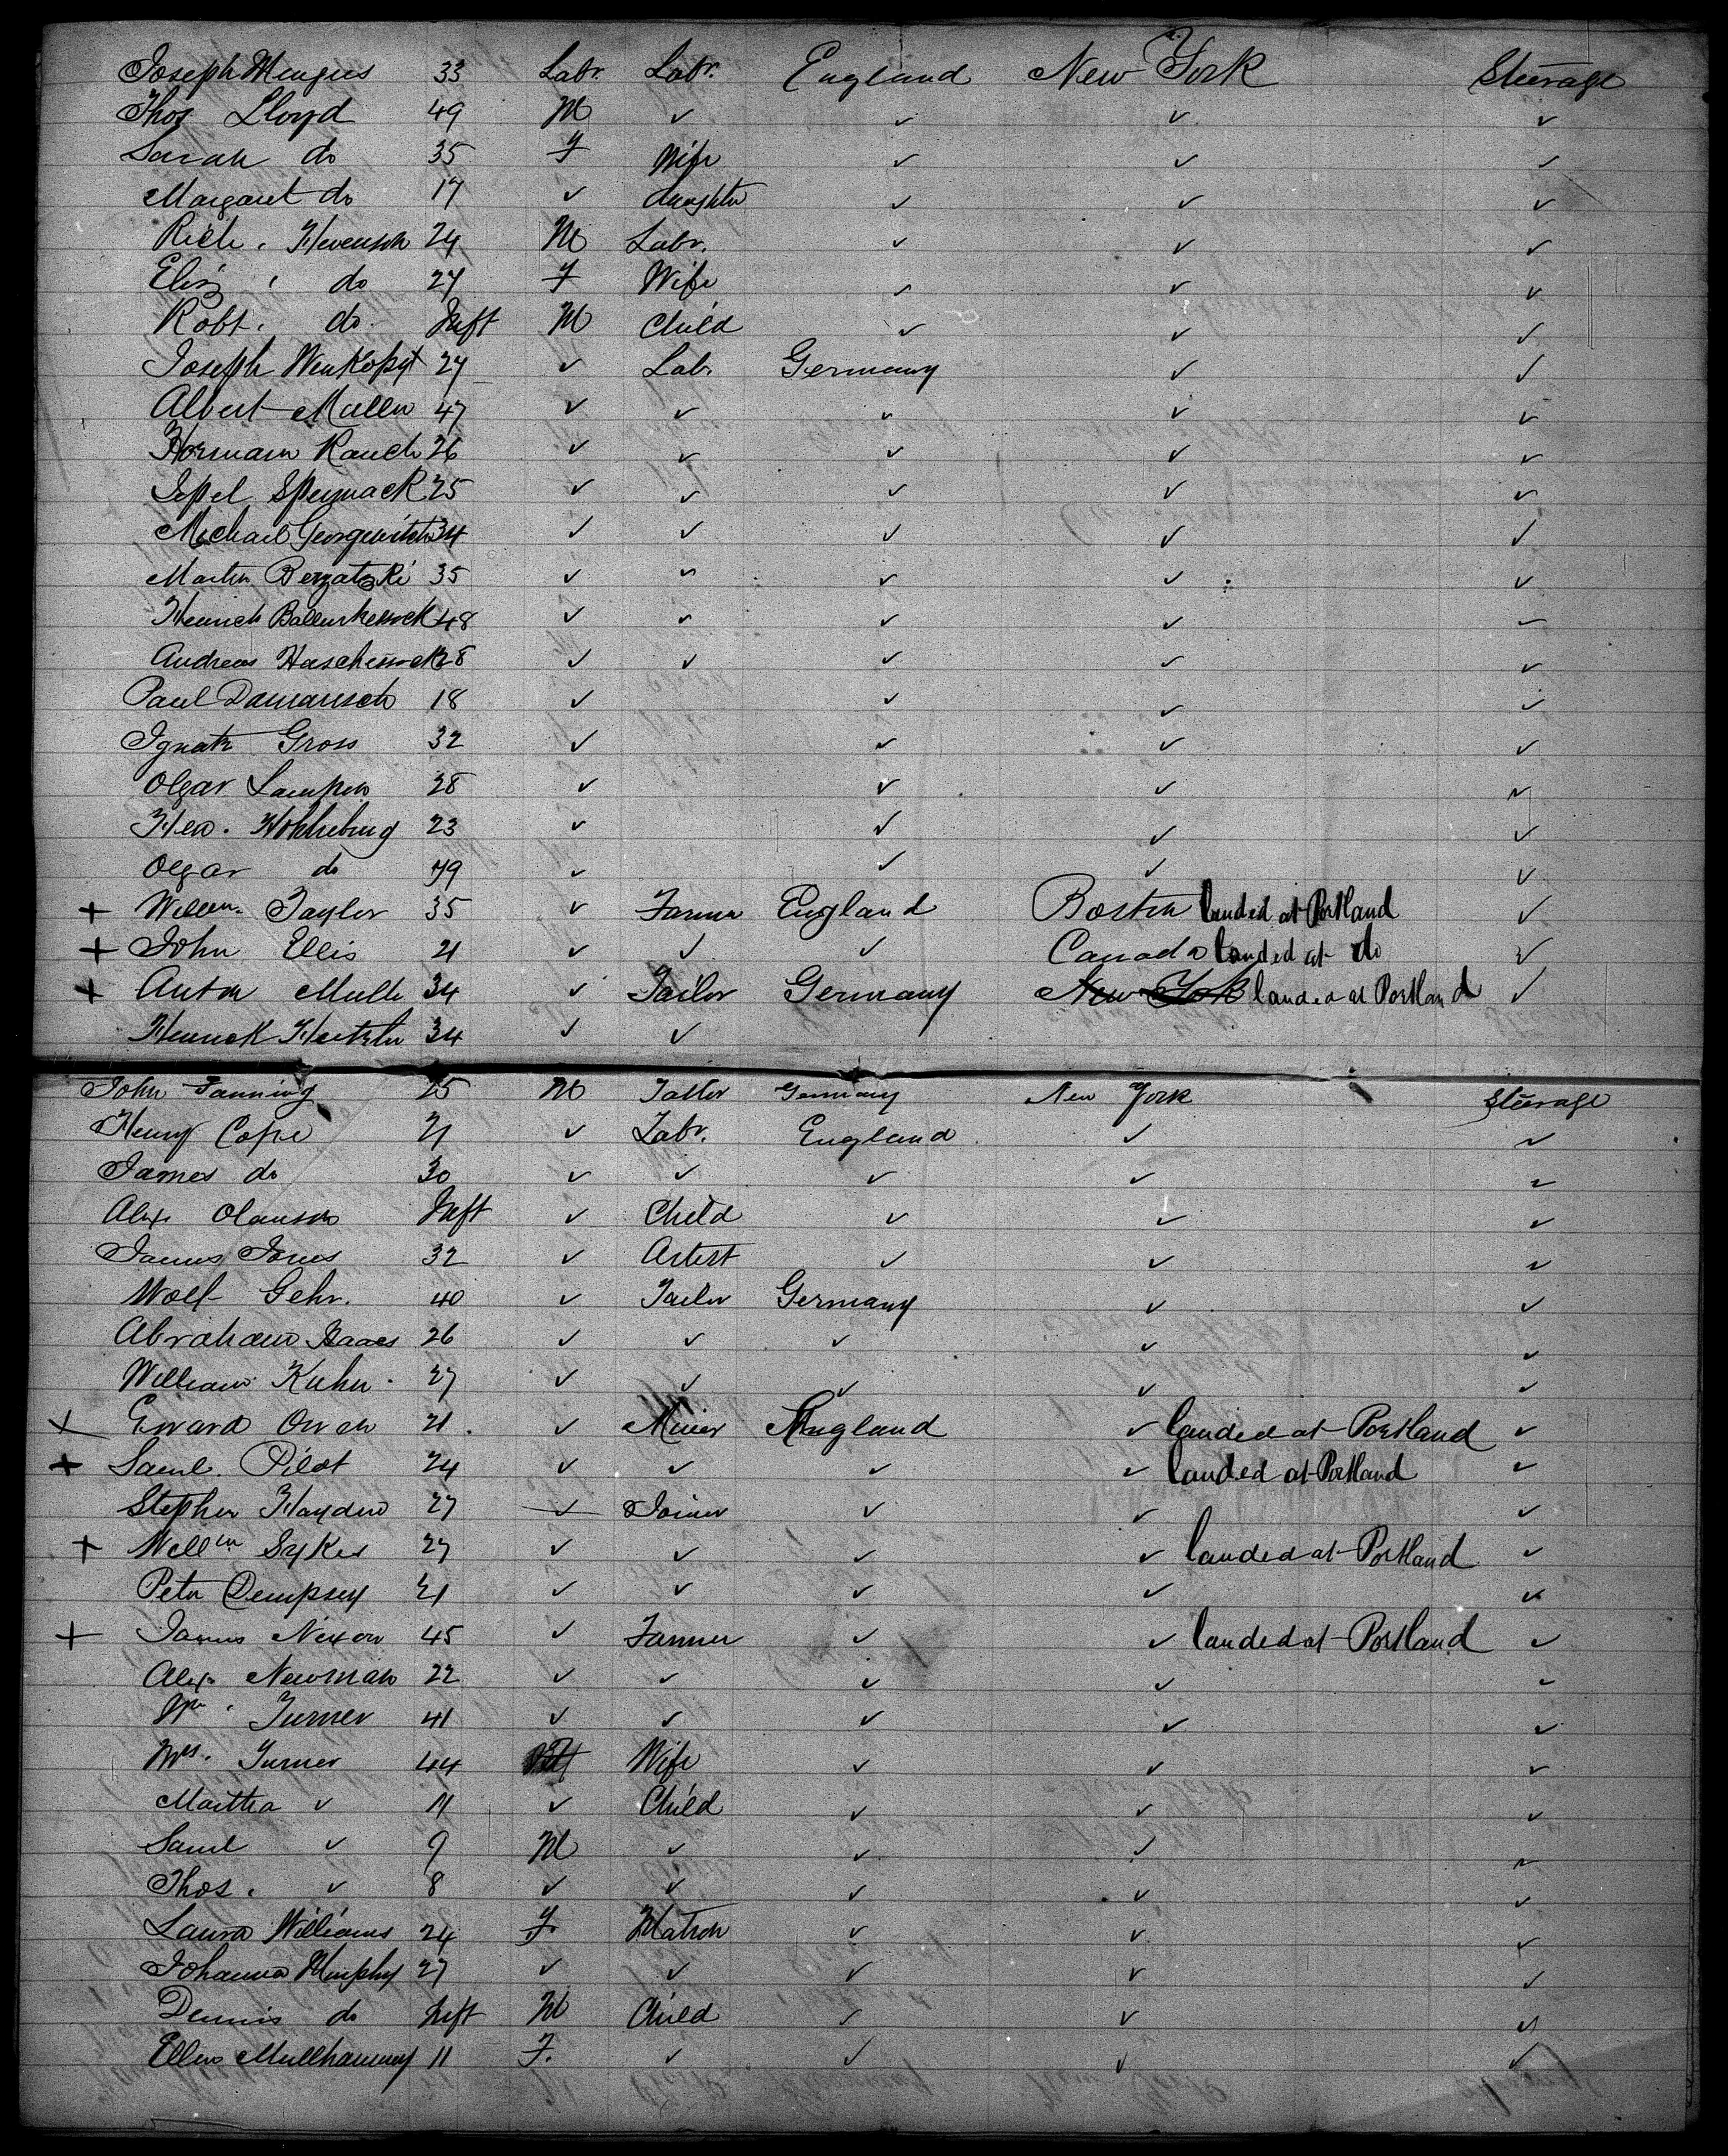 Joseph 33 Labr. Labr. England New York Steerage
Thos Lloyd 49 M ✓ ✓ ✓ ✓
Sarah do 35 F Wife ✓ ✓ ✓
Margaret do 17 ✓ daughter ✓ ✓ ✓
Rich. 24 M Labr. ✓ ✓ ✓
Eliz do 27 F Wife ✓ ✓ ✓
Robt. do. Inft M Child ✓ ✓ ✓
Joseph 27 ✓ Labr Germany ✓ ✓
Albert Muller 47 ✓ ✓ ✓ ✓ ✓
Hermann Rauch 26 ✓ ✓ ✓ ✓ ✓
25 ✓ ✓ ✓ ✓ ✓
Michael Georgewitch 34 ✓ ✓ ✓ ✓ ✓
Martin 35 ✓ ✓ ✓ ✓ ✓
Heinrich 48 ✓ ✓ ✓ ✓ ✓
Andreas 28 ✓ ✓ ✓ ✓ ✓
Paul 18 ✓ ✓ ✓ ✓
Ignatz Gross 32 ✓ ✓ ✓ ✓
Olgar 28 ✓ ✓ ✓ ✓
23 ✓ ✓ ✓ ✓
Olgar do ✓ ✓ ✓ ✓
+ Willm. Taylor 35 ✓ Farmer England Boston landed at Portland ✓
+ John Ellis 21 ✓ ✓ ✓ Canada landed at do ✓
+ Anton Mulle 34 ✓ Tailor Germany New York landed at Portland ✓
34 ✓ ✓
John Fanning 25 M Tailor Germany New York Steerage
Henry Cope 21 ✓ Labr. England ✓ ✓
James do 30 ✓ ✓ ✓ ✓ ✓
Alex Inft ✓ Child ✓ ✓ ✓
James Jones 32 ✓ Artist ✓ ✓ ✓
Wolf Gehr. 40 ✓ Tailor Germany ✓ ✓
Abraham Isaacs 26 ✓ ✓ ✓ ✓ ✓
William Kuhn 27 ✓ ✓ ✓ ✓ ✓
+ Edward Owen 21. ✓ Miner England ✓ landed at Portland ✓
+ Saml. Pilot 24 ✓ ✓ ✓ ✓ landed at Portland ✓
Stephen Hayden 27 ✓ Joiner ✓ ✓ ✓
+ Willm Sykes 27 ✓ ✓ ✓ ✓ landed at Portland ✓
Peter Dempsey 21 ✓ ✓ ✓ ✓ ✓
+ James Nixon 45 ✓ Farmer ✓ ✓ landed at Portland ✓
Alex Newman 22 ✓ ✓ ✓ ✓ ✓
Wm. Turner 41 ✓ ✓ ✓ ✓ ✓
Mrs. Turner 44 Wife ✓ ✓ ✓
Martha ✓ 11 ✓ Child ✓ ✓ ✓
Saml ✓ 9 M ✓ ✓ ✓ ✓
Thos. ✓ 8 ✓ ✓ ✓ ✓ ✓
Laura Williams 24 F. Matron ✓ ✓ ✓
Johanna Murphy 27 ✓ ✓ ✓ ✓ ✓
Dennis do Inft M Child ✓ ✓ ✓
Ellen 11 F. ✓ ✓ ✓ ✓